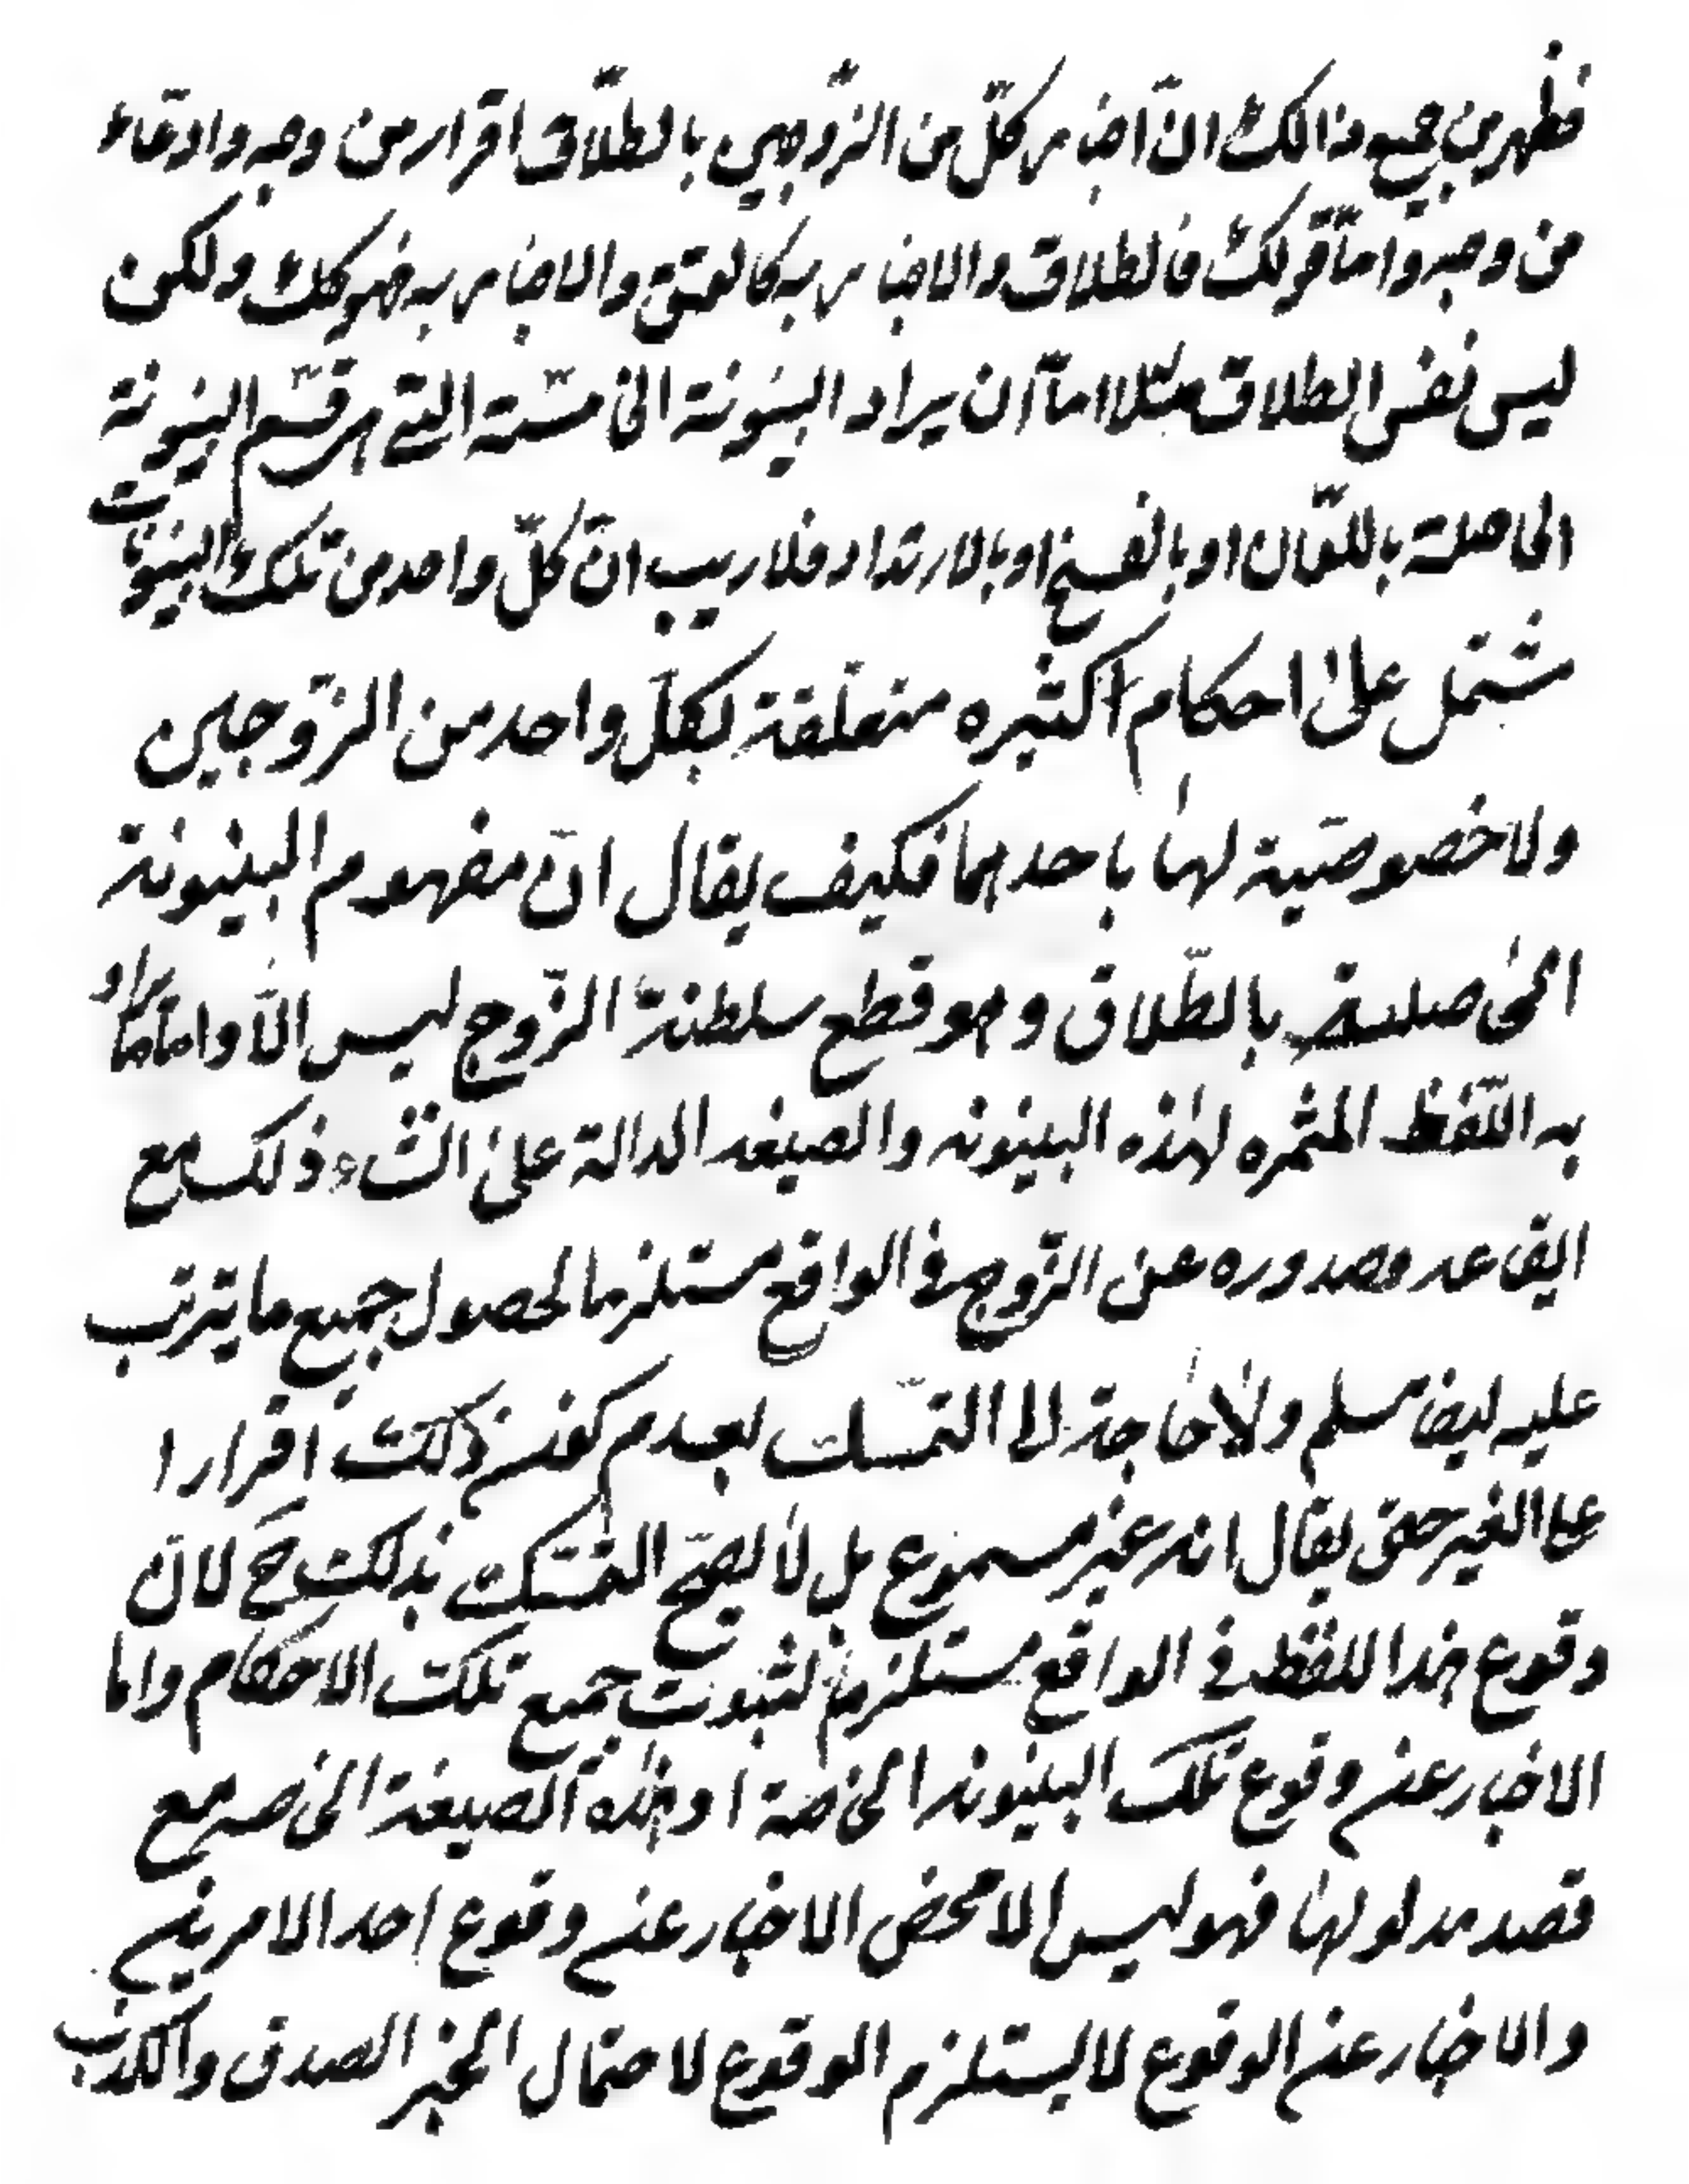 فظهر من جميع ذالك انّ اخبار كلّ من الزّوجين بالطلّاق اقرار من وجه وادّعاء
من وجه وامّا قولك فالطلاق والاخبار به كالعتق والاخبار به فهو كك ولكن
ليس نفس الطلاق مثلا امّا أن يراد البينونة الخاصّة التي هي قسم البينونة
الحاصلة باللّعان او بالفسخ او بالارتداد فلاريب انّ كلّ واحد من تلك البينونات
مشتمل على احكام كثيره متعلّقة بكلّ واحد من الزّوجين
ولا خصوصيّة لها باحدهما فكيف يقال انّ مفهوم البينونة
الحاصلة بالطّلاق وهو قطع سلطنة الزّوج ليس الّا وامّا ما يراد
به اللّفظ المثمره لهذه البينونه والصيغه الدالة على انشاء ذلك مع
ايقاعه وصدوره عن الزّوج في الواقع مستلزما لحصول جميع ما يترتب
عليه ايضا مسلم ولا حاجة الى التمسّك بعدم كونه ذلك اقرارا
على الغير حتى يقال انه غير مسموع بل لا يصحّ التمسّك بذلك ح لانّ
وقوع هذا اللفظ في الواقع مستلزم لثبوت جميع تلك الاحكام واما
الاخبار عن وقوع تلك البينونه الخاصة او هذه الصيغة الخاصه مع
قصد مدلولها فهو ليس الا محض الاخبار عن وقوع احد الامرين
والاخبار عن الوقوع لا يستلزم الوقوع لاحتمال الخبر الصدق والكذب